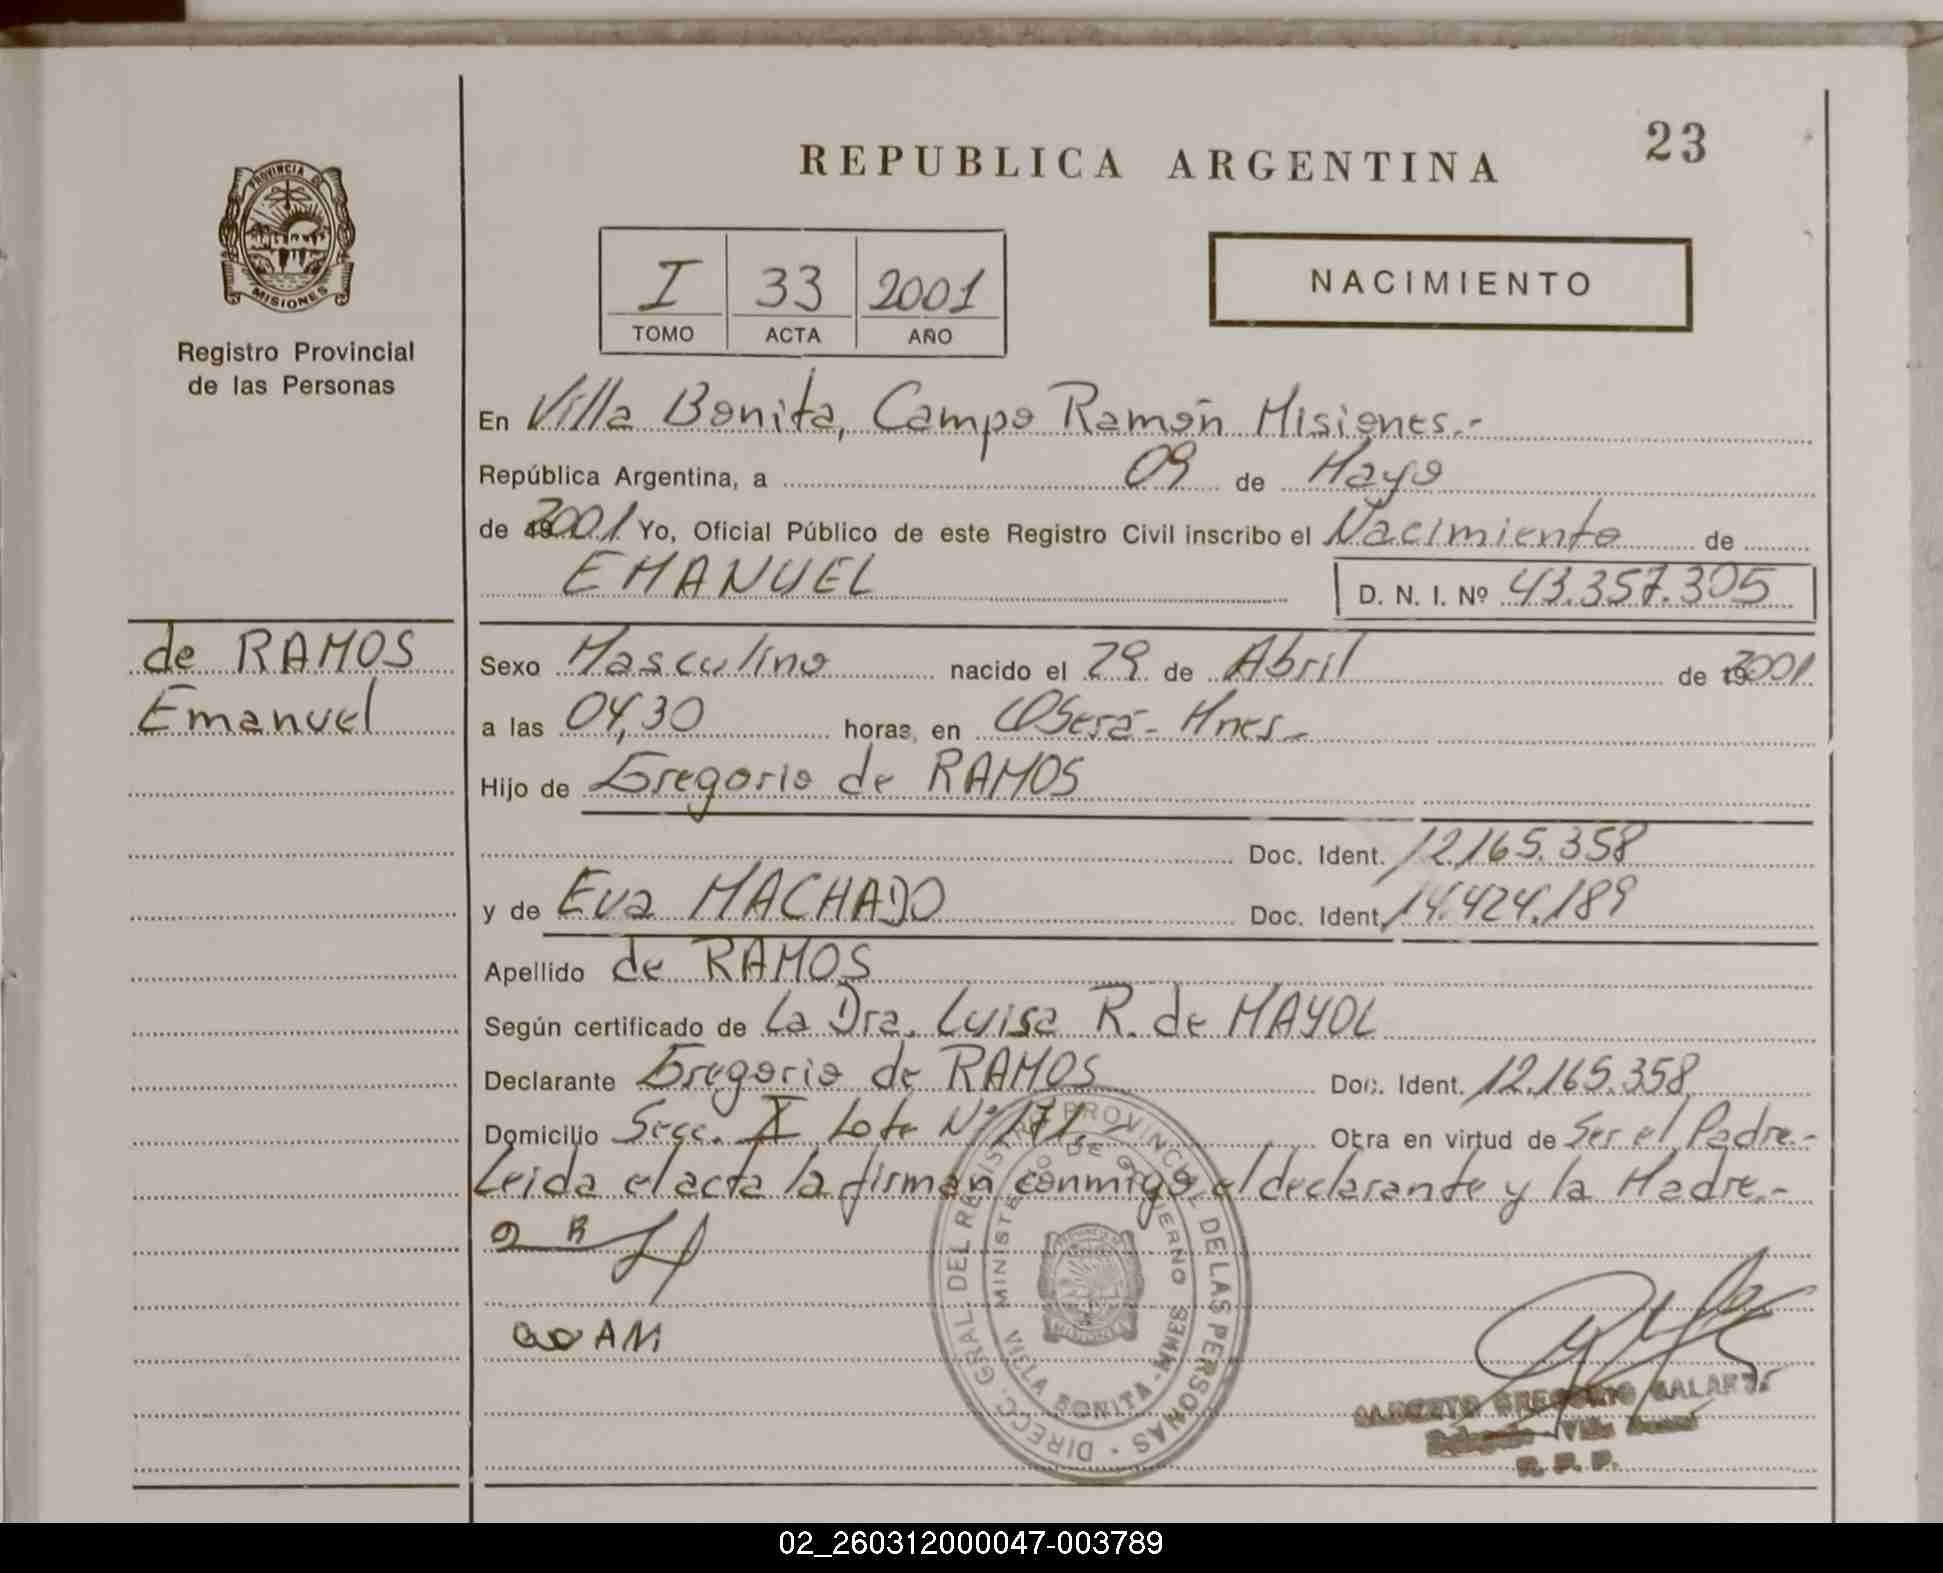 23
REPUBLICA ARGENTINA
PROVINCIA DE
MISIONES
Registro Provincial
de las Personas
I 33 2001
TOMO ACTA AÑO
NACIMIENTO
En Villa Bonita, Campo Ramón Misiones.-
República Argentina, a 09 de Mayo
de 2001 Yo, Oficial Público de este Registro Civil inscribo el Nacimiento de
EMANUEL D. N. I. Nº 43.357.305
de RAMOS
Emanuel
Sexo Masculino nacido el 29 de Abril de 2001
a las 04,30 horas, en Oberá - Mnes.-
Hijo de Gregorio de RAMOS
Doc. Ident. 12.165.358
y de Eva MACHADO Doc. Ident. 14.424.189
Apellido de RAMOS
Según certificado de La Dra. Luisa R. de MAYOL
Declarante Gregorio de RAMOS Doc. Ident. 12.165.358
Domicilio Secc. X Lote Nº 171.- Obra en virtud de Ser el Padre.-
Leida el acta la firman conmigo el declarante y la Madre.-
DIRECC. GRAL. DEL REGISTRO PROVINCIAL DE LAS PERSONAS
MINISTERIO DE GOBIERNO
VILLA BONITA - MNES
ALBERTO GREGORIO
R. P. P.
02_260312000047-003789